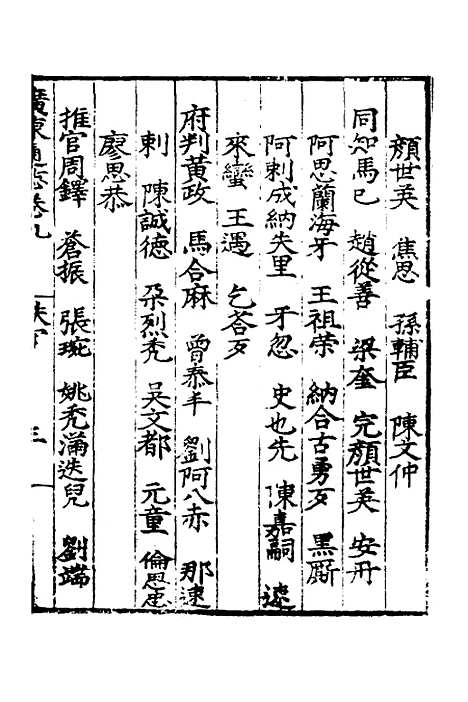 顏世英 焦思 孫輔臣 陳文仲
同知馬巳 趙從善 梁奎 完顏世英 安丹
阿思蘭海牙 王祖荣 納合古勇歹 黑厮
阿剌成納失里 牙忽 史也先 陳嘉嗣 逺
來蠻 王遇 乞荅歹
府判黃政 馬合麻 曾泰亨 劉阿八赤 那速
剌 陳誠德 朶烈秃 吴文都 元童 倫思惠
廖思恭
推官周鐸 蒼振 張琬 姚秃滿迭兒 劉端
廣東通志卷九